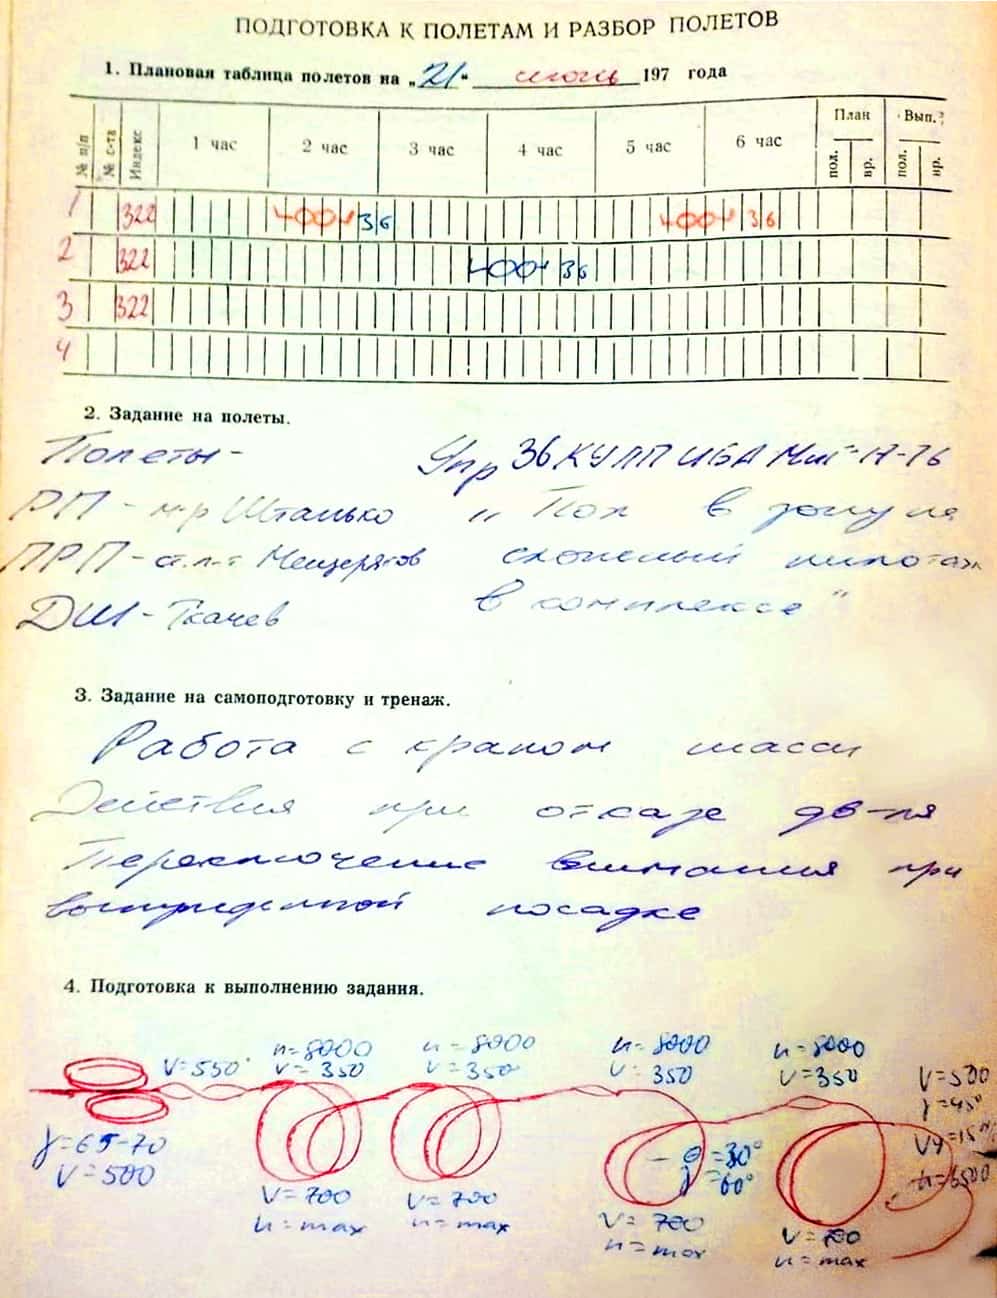 ПОДГОТОВКА К ПОЛЕТАМ И РАЗБОР ПОЛЕТОВ
1. Плановая таблица полетов на „21“ июнь 197 года
№ п/п № с-та Индекс 1 час 2 час 3 час 4 час 5 час 6 час План Вып.
пол. вр. пол. вр.
1 322 36 36
2 322 36
3 322
4
2. Задание на полеты.
Полеты - Упр 36 КУЛП ИБА МиГ-17-76
РП - м-р Штанько „ Пол в зону на
ПРП - ст. л-т Мещеряков сложный пилотаж
ДШ - Ткачев в комплексе "
3. Задание на самоподготовку и тренаж.
Работа с краном шасси
Действия при отказе дв-ля
Переключение внимания при
вынужденной посадке
4. Подготовка к выполнению задания.
V=550 n=8000 n=8000 n=8000 n=8000
V=350 V=350 V=350 V=350
V=500
γ=45°
γ=65-70
V=500
Vy=15
θ=30°
γ=60°
n=6500
V=700 V=700 V=700 V=700
n=max n=max n=max n=max